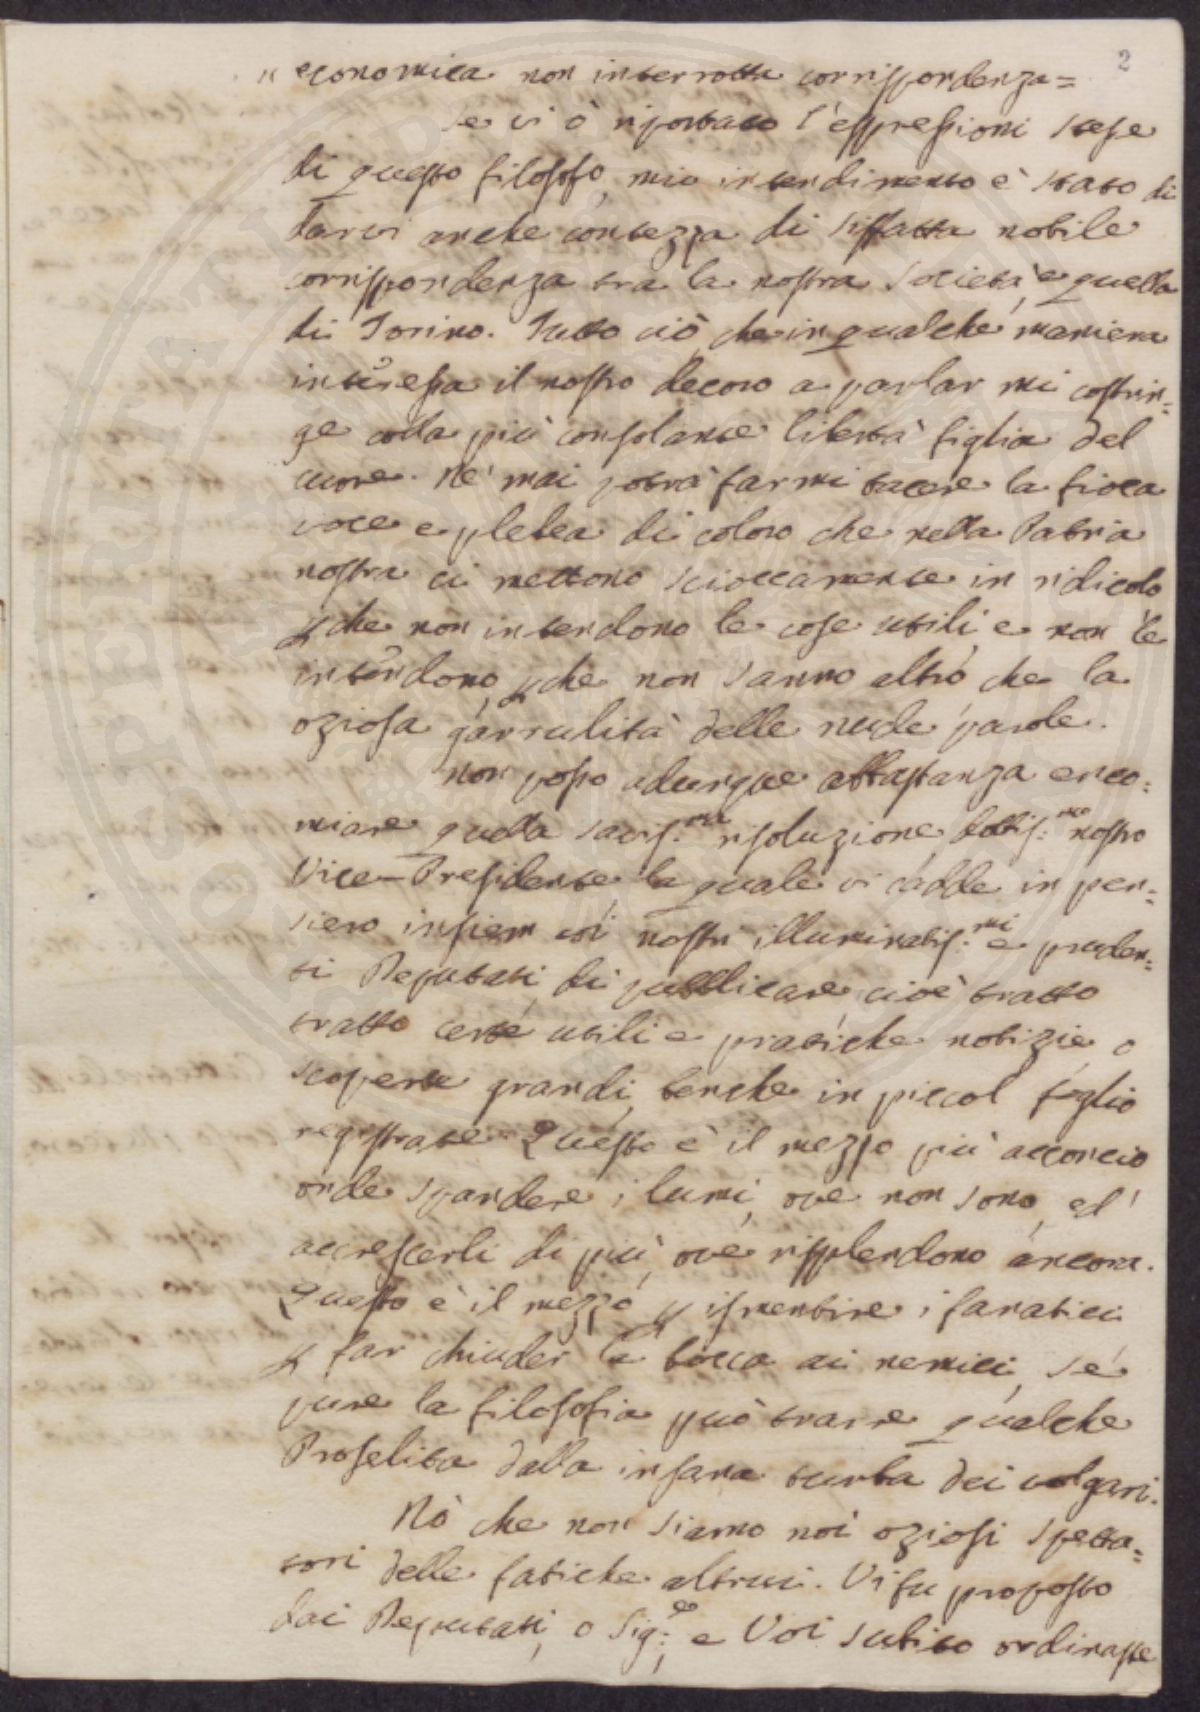 2
" economica non interrotta corrispondenza=
Se vi ò riportato l'espressioni stese
di questo filosofo, mio intendimento è stato di
darvi anche contezza di siffatta nobile
corrispondenza tra la nostra Società, e quella
di Torino. Tutto ciò, che in qualche maniera
interessa il nostro decoro a parlar mi costrin=
ge colla più consolante libertà figlia del
cuore. Nè mai potrà farmi tacere la fioca
voce e plebea di coloro che nella Patria
nostra ci mettono scioccamente in ridicolo
pche non intendono le cose utili, e non le
intendono, pche non sanno altro che la
oziosa garrulità delle nude parole.
Non posso adunque abbastanza enco=
miare quella savis:ma risoluzione, dottis:mo nostro
Vice-Presidente, la quale vi cadde in pen=
siero insiem coi nostri illuminatis:mi e pruden=
ti Deputati, di pubblicare, cioè tratto
tratto certe utili e pratiche notizie o
scoperte grandi, benche in piccol foglio
registrate. Questo è il mezzo più acconcio
onde spandere i lumi, ove non sono, ed
accrescerli di più, ove risplendono ancora.
Questo è il mezzo p ismentire i fanatici
p far chiuder la bocca ai nemici, se
pure la filosofia può trarre qualche
Proselita dalla insana turba dei volgari.
Nò che non siamo noi oziosi spetta=
tori delle fatiche altrui. Vi fu proposto
dai Deputati, o Sig:e, e Voi subito ordinaste